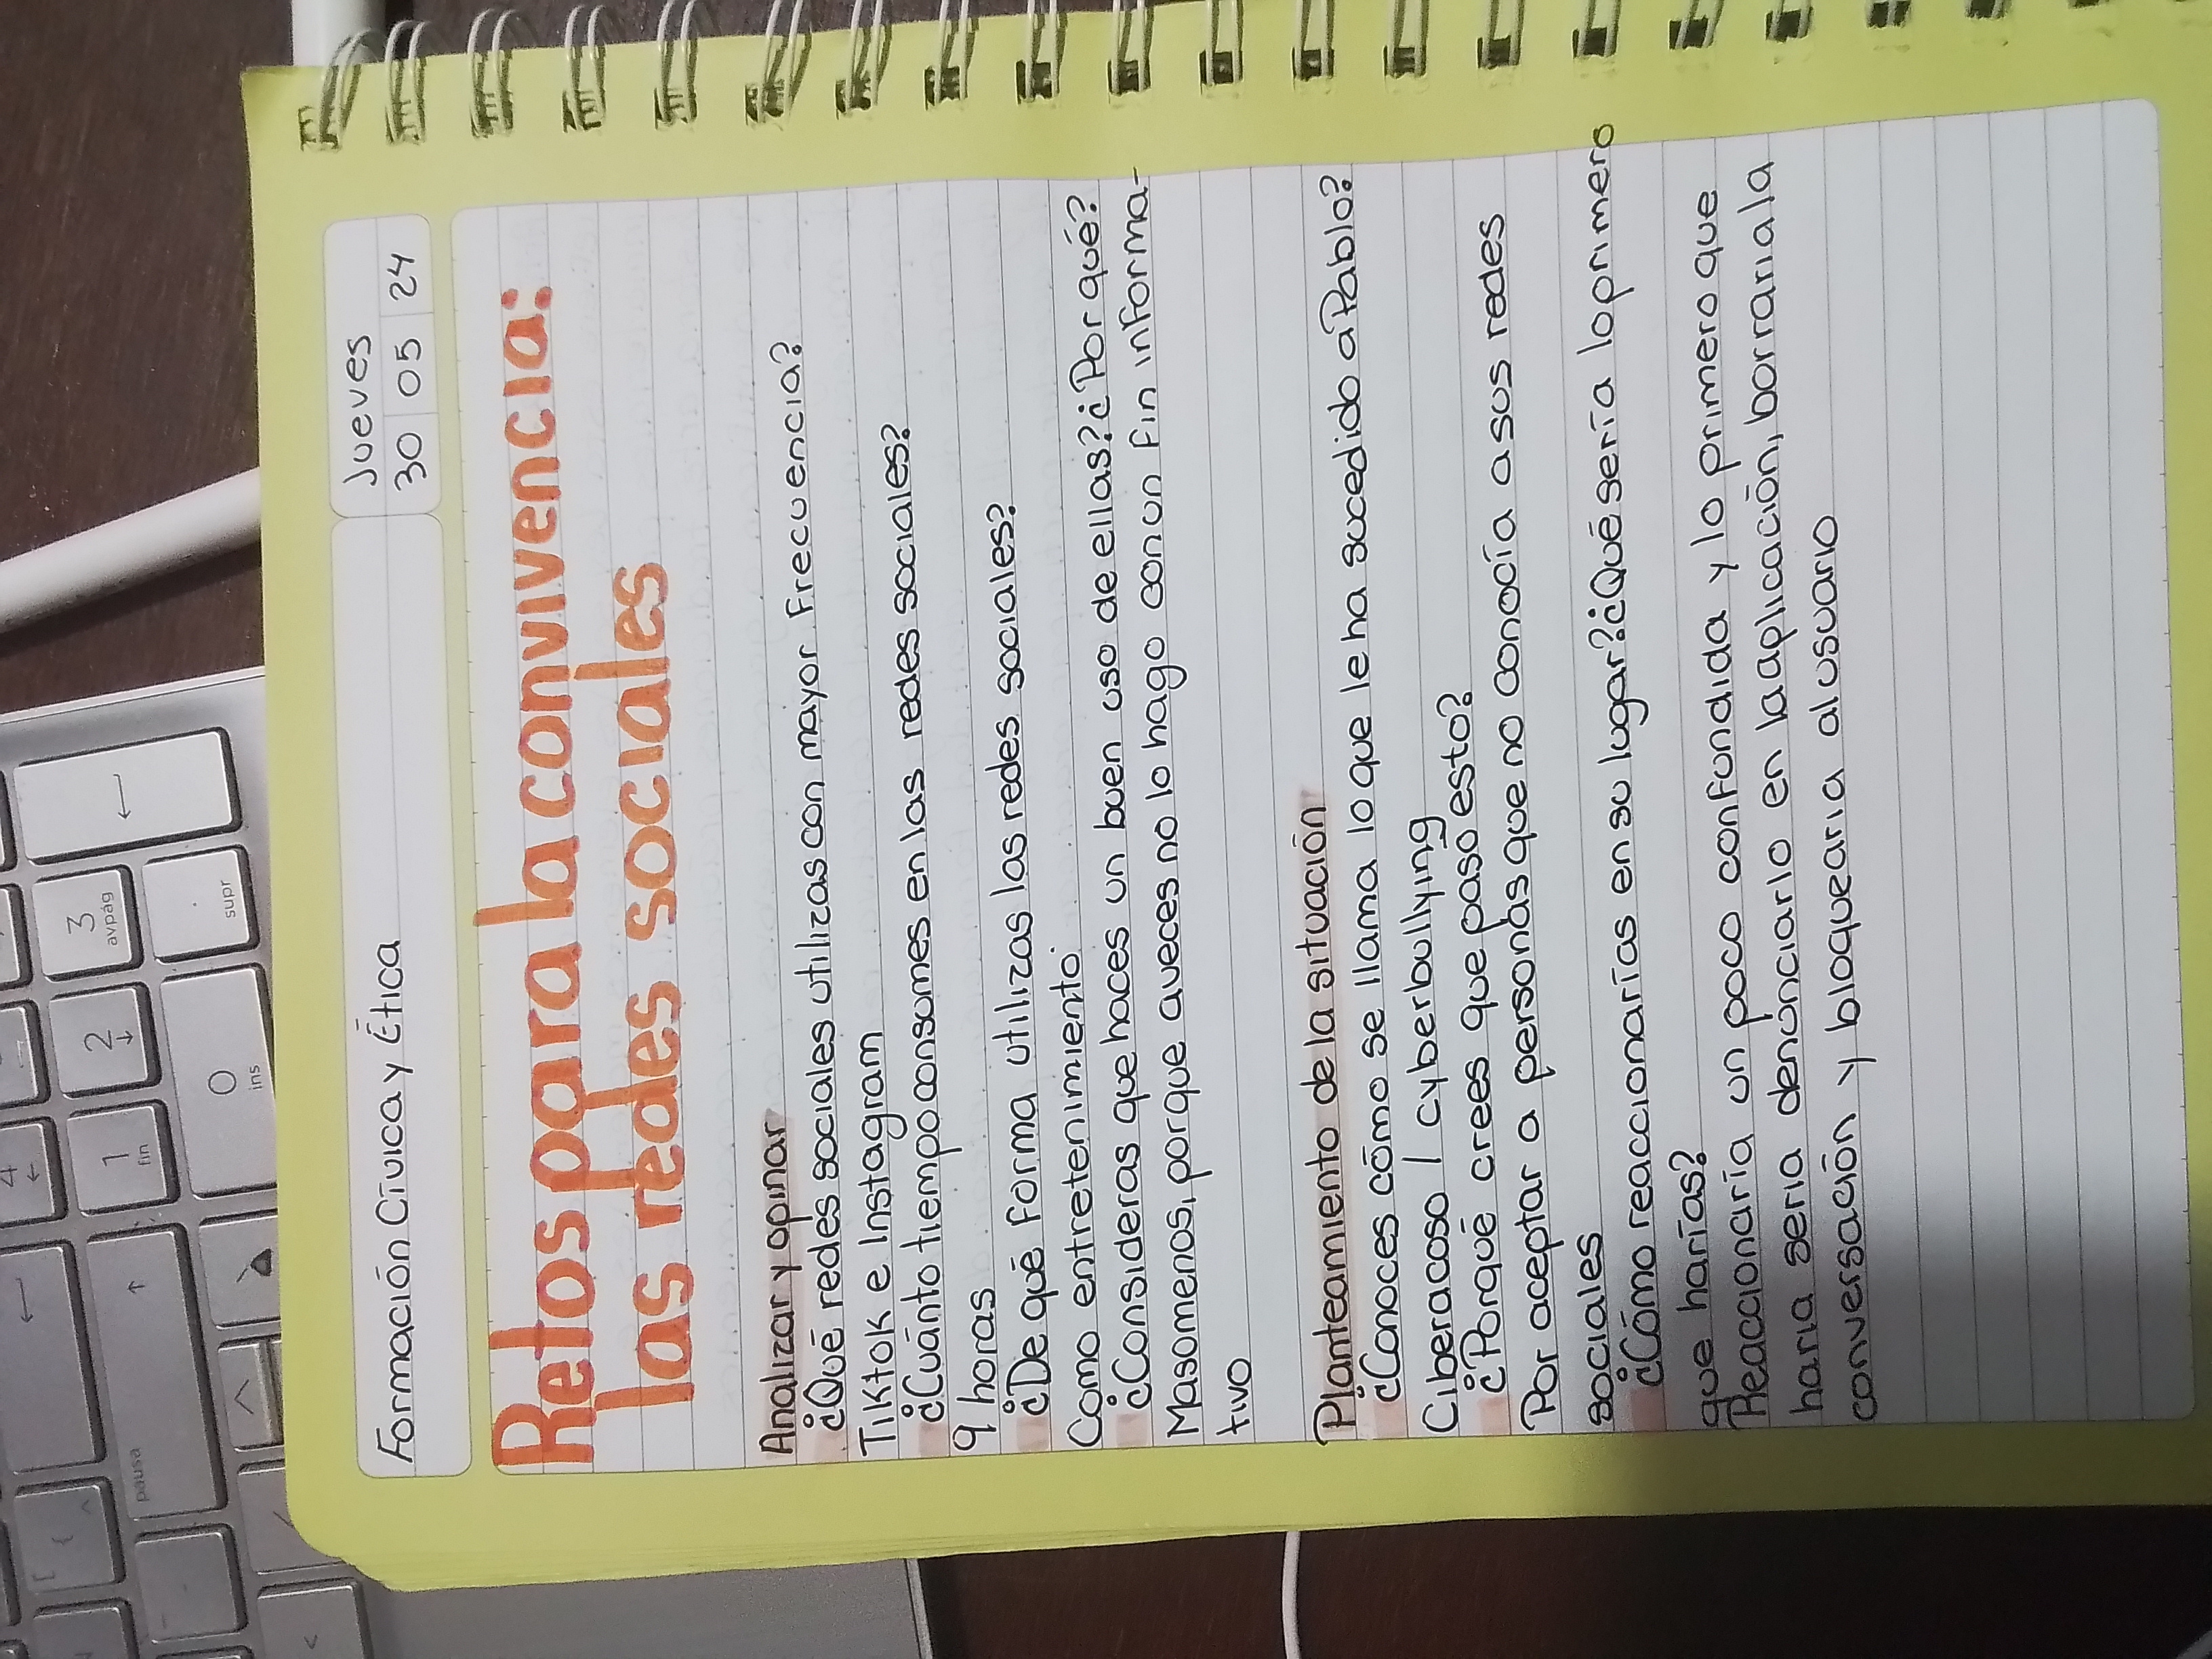 Formación Cívica y Ética
Jueves
30 05 24
Retos para la convivencia:
las redes sociales
Analizar y opinar
¿Qué redes sociales utilizas con mayor frecuencia?
Tiktok e Instagram
¿Cuánto tiempo consumes en las redes sociales?
9 horas
¿De qué forma utilizas las redes sociales?
Como entretenimiento
¿Consideras que haces un buen uso de ellas? ¿Por qué?
Masomenos, porque aveces no lo hago con un fin informa-
tivo
Planteamiento de la situación
¿Conoces cómo se llama lo que le ha sucedido a Pablo?
Ciberacoso / cyberbullying
¿Porqué crees que pasó esto?
Por aceptar a personas que no conocía a sus redes
sociales
¿Cómo reaccionarías en su lugar? ¿Qué sería lo primero
que harías?
Reaccionaría un poco confundida y lo primero que
haria seria denunciarlo en la aplicación, borraria la
conversación y bloquearia al usuario
4
←
1
fin
2
↓
3
avpág
0
ins
.
supr
pausa
←
↑
←
[
{
^
-
<